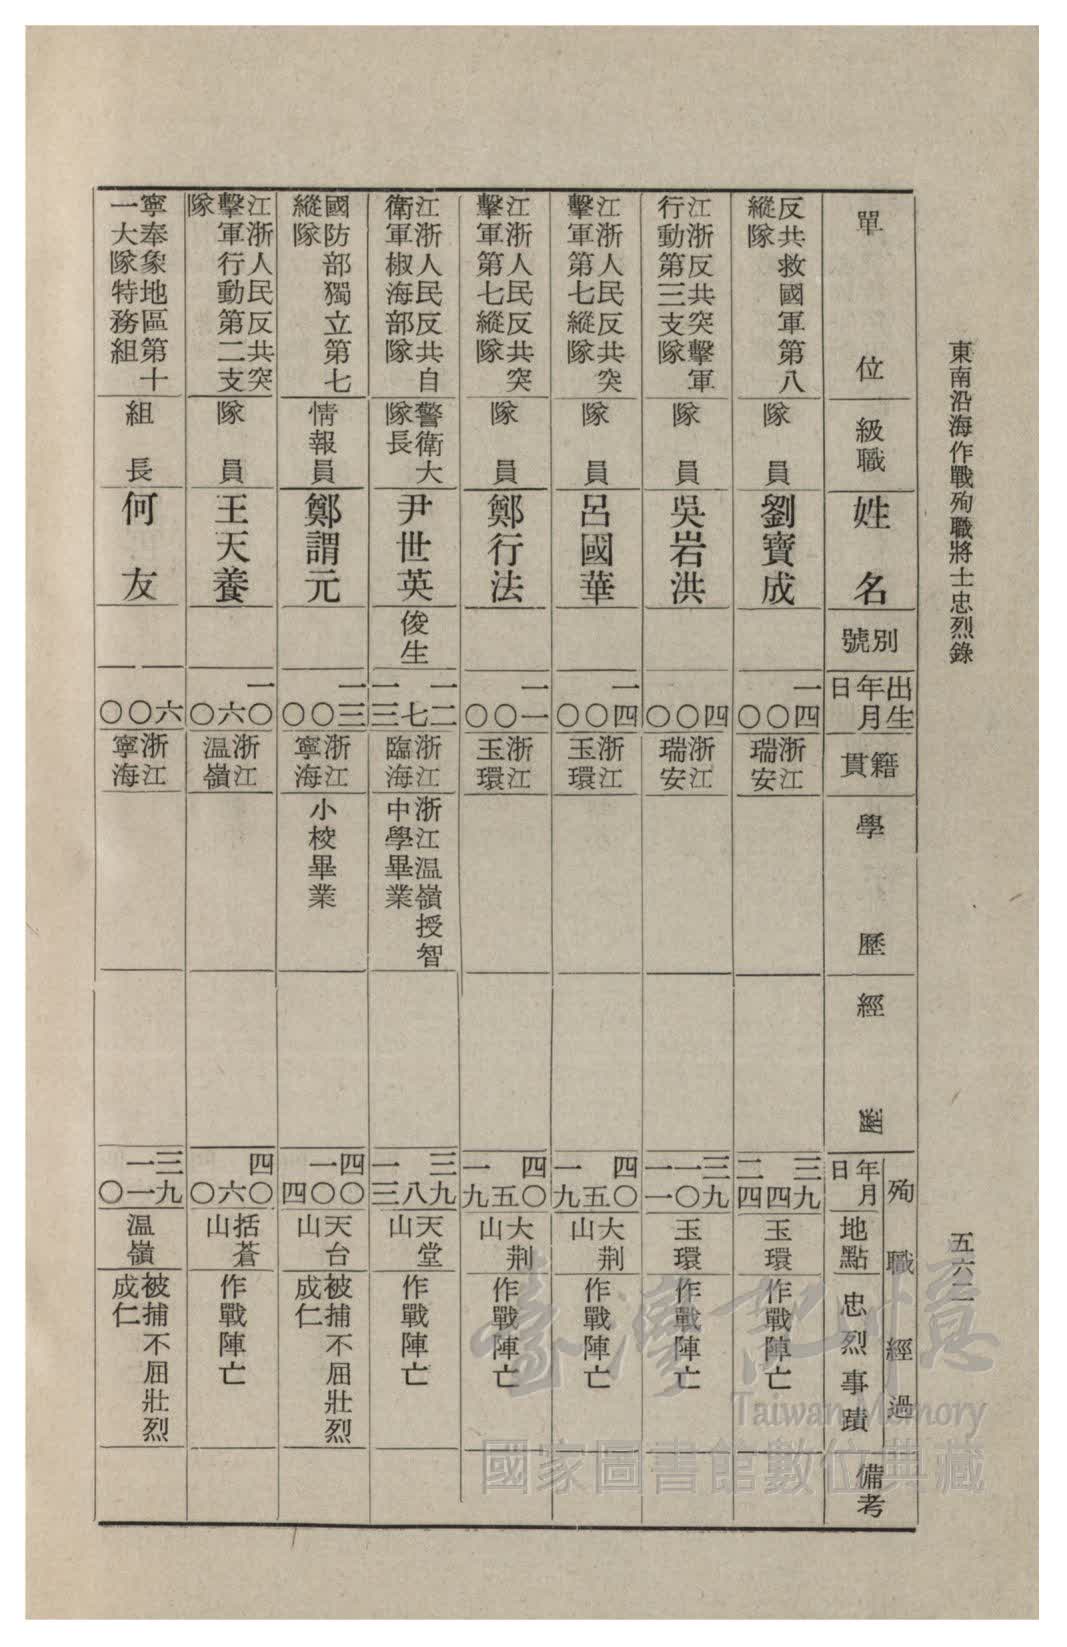 東南沿海作戰殉職將士忠烈錄
五六二
單位
級職
姓名
別號
出生年月日
籍貫
學歷
經歷
殉職經過
年月日
地點
忠烈事蹟
備考
反共救國軍第八
縱隊
隊員
劉寶成
一四
〇
〇
浙江
瑞安
三九
四
二四
玉環
作戰陣亡
江浙反共突擊軍
行動第三支隊
隊員
吳岩洪
四
〇
〇
浙江
瑞安
三九
一〇
一一
玉環
作戰陣亡
江浙人民反共突
擊軍第七縱隊
隊員
呂國華
一四
〇
〇
浙江
玉環
四〇
五
一九
大荆
山
作戰陣亡
江浙人民反共突
擊軍第七縱隊
隊員
鄭行法
一一
〇
〇
浙江
玉環
四〇
五
一九
大荆
山
作戰陣亡
江浙人民反共自
衛軍椒海部隊
警衛大
隊長
尹世英
俊生
一二
七
一三
浙江
臨海
浙江温嶺授智
中學畢業
三九
八
一三
天堂
山
作戰陣亡
國防部獨立第七
縱隊
情報員
鄭謂元
一三
〇
〇
浙江
寧海
小校畢業
四〇
一〇
四
天台
山
被捕不屈壯烈
成仁
江浙人民反共突
擊軍行動第二支
隊
隊員
王天養
一〇
六
〇
浙江
温嶺
四〇
六
〇
括蒼
山
作戰陣亡
寧奉象地區第十
一大隊特務組
組長
何友
一六
一〇
一〇
浙江
寧海
三九
一一
〇
温嶺
被捕不屈壯烈
成仁
臺灣記憶
Taiwan Memory
國家圖書館數位典藏